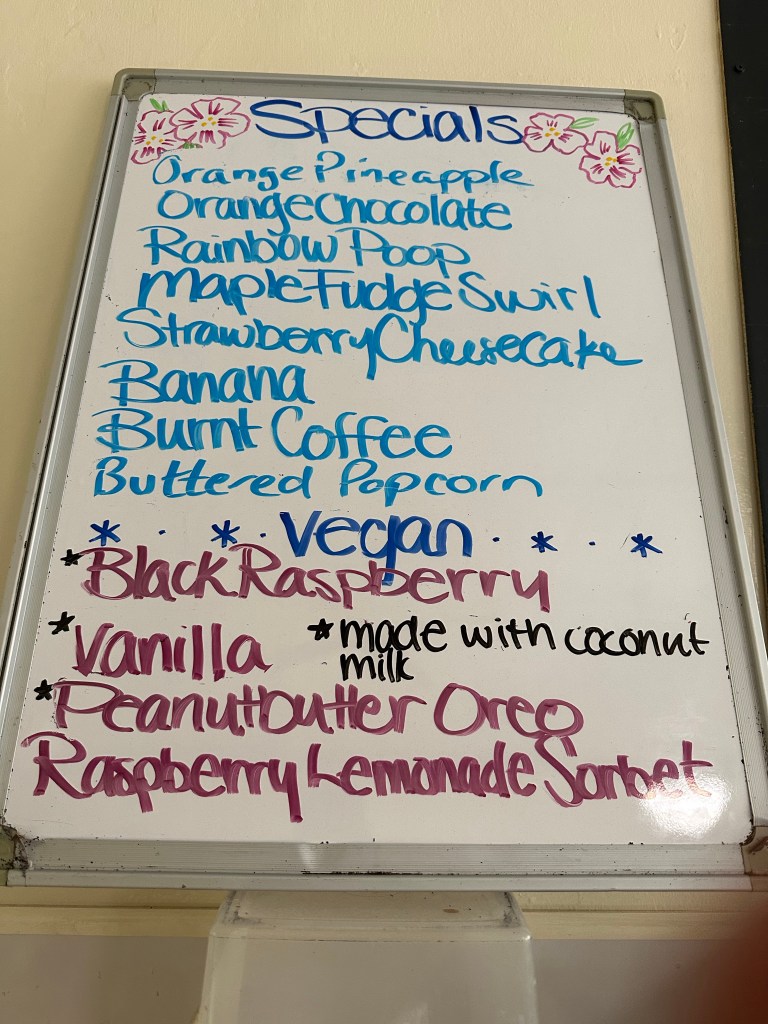 Specials
Orange Pineapple
Orange Chocolate
Rainbow Poop
Maple Fudge Swirl
Strawberry Cheesecake
Banana
Burnt Coffee
Buttered Popcorn
* . * . Vegan . * . *
*Black Raspberry
*Vanilla *made with coconut
milk
*Peanutbutter Oreo
Raspberry Lemonade Sorbet